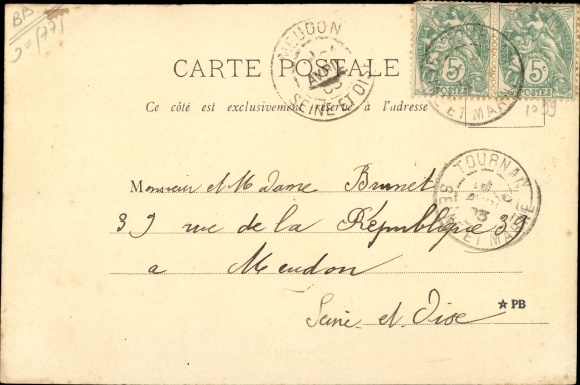 MEUDON
SEINE ET OISE
5c 5c
POSTES POSTES
CARTE POSTALE
Ce côté est exclusivement réservé à l'adresse
TOURNAN
SEINE ET MARNE
Monsieur et Madame Brunet
39 rue de la République 39
a Meudon
Seine et Oise
PB